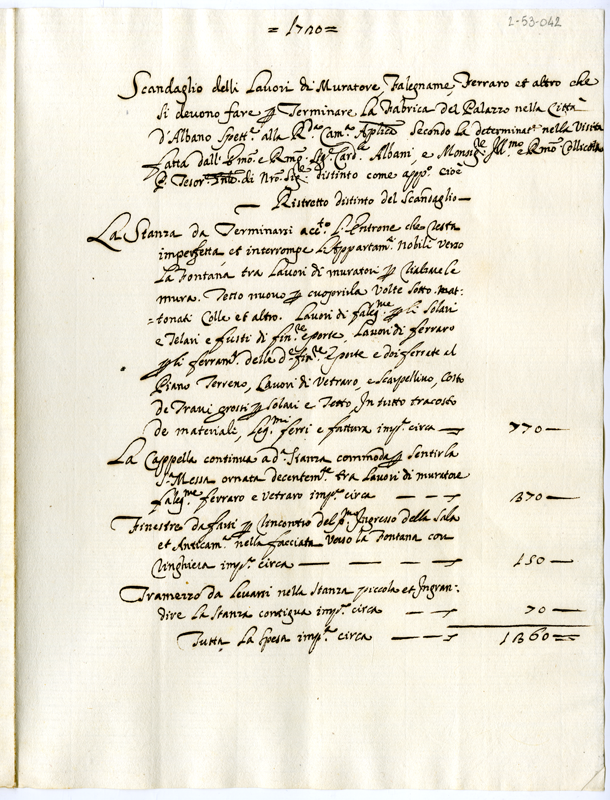 2-53-042
= 1720 =
Scandaglio delli Lavori di Muratore, Falegname, Ferraro et altro che
si devono fare p Terminare la Fabrica del Palazzo nella Città
d'Albano spett.e alla R.da Cam.a Aplica Secondo la determinat.e nella Visita
fatta dall' Emo. e Rmo. Sig.r Card.le Albani, e Monsig.re Ill.mo e Rmo. Collicola
P. Tesor. di Nro. Sig.re distinto come app.o cioè
— Ristretto distinto del Scandaglio —
La Stanza da Terminarsi acc.to L'Entrone che resta
imperfetta et interrompe l'Appartam.to Nobili verso
La Fontana tra Lavori di muratori p
mura. Tetto nuovo p cuoprirla volte sotto. Mat:
=tonati Colle et altro. Lavori di faleg.me p li Solari
e Telari e fusti di fin.re e porte, Lavori di ferraro
p li ferram.ti delle d.e fin.re e porte e doi ferrate al
Piano Terreno, Lavori di Vetraro, e Scarpellino, Costo
de Travi grossi p Solari e Tetto, In tutto tra costo
de materiali, Leg.mi ferri e fattura imp.a circa — 770 —
La Cappella contigua a d.a Stanza commoda p sentir la
S.a Messa ornata decentem.te tra Lavori di muratore
faleg.me ferraro e vetraro imp.a circa — — 370 —
Finestre da farsi p l'incontro del p.mo Ingresso della Sala
et Anticam.a nella facciata verso la Fontana con
Ringhiera imp.a circa — — — — 150 —
Tramezzo da Levarsi nella Stanza piccola et Ingran:
dire la Stanza contigua imp.a circa — — 70 —
Tutta la spesa imp.a circa — — 1360 =